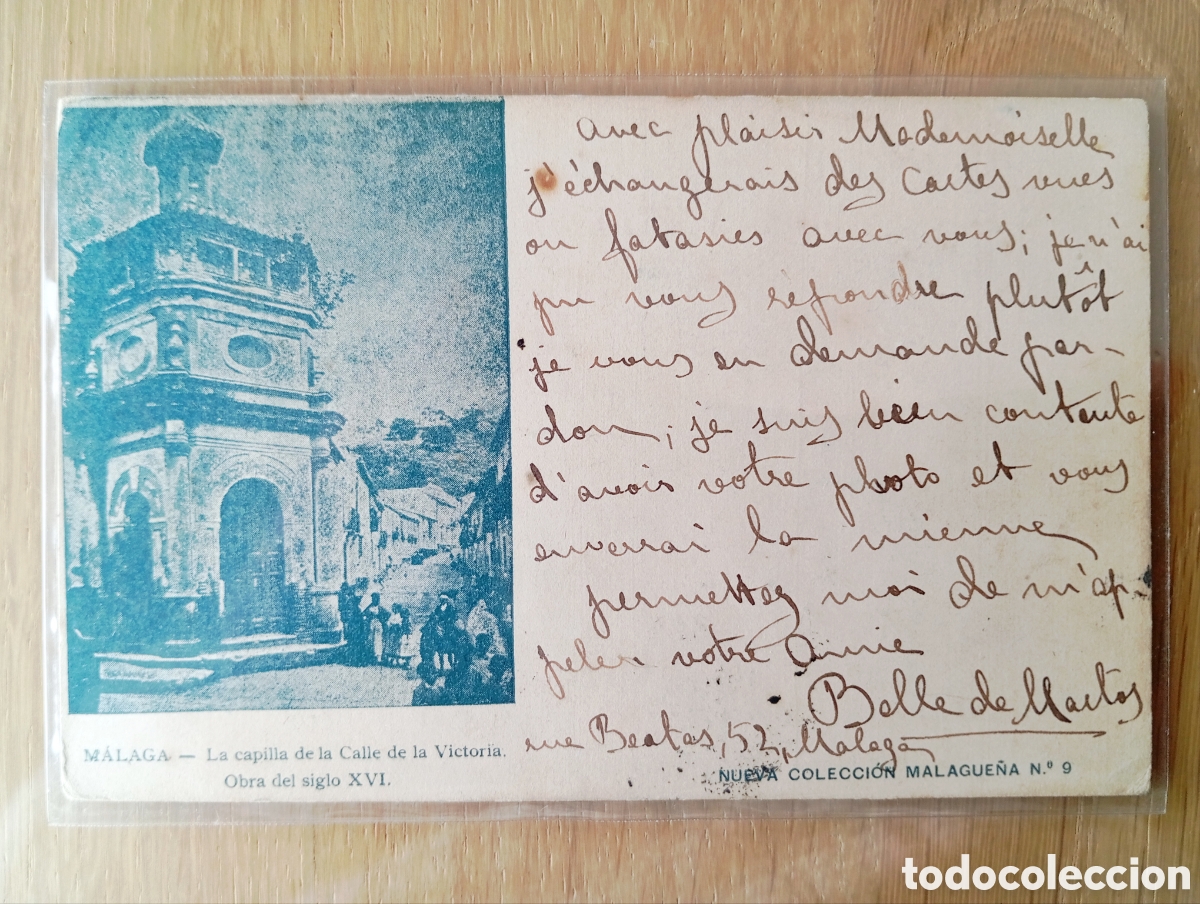 avec plaisir Mademoiselle
j'échangerais des cartes vues
ou fatasies avec vous; je n'ai
pu vous repondre plutôt
je vous en demande par-
don; je suis bien contente
d'avoir votre photo et vous
enverrai la mienne
permettez moi de m'ap-
peler votre Amie
Belle de Martos
rue Beatas, 52, Málaga
MÁLAGA — La capilla de la Calle de la Victoria.
Obra del siglo XVI.
NUEVA COLECCIÓN MALAGUEÑA N.º 9
todocoleccion